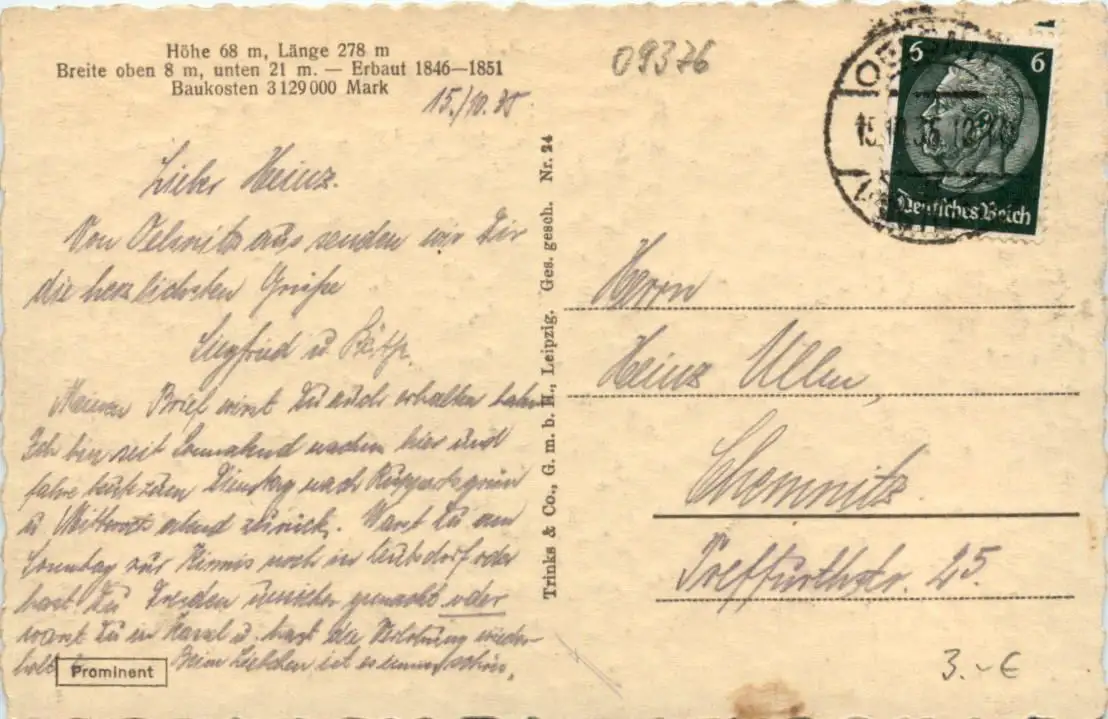 Höhe 68 m, Länge 278 m
Breite oben 8 m, unten 21 m. — Erbaut 1846—1851
Baukosten 3129000 Mark
15./10.35
Lieber Heinz.
Von Oelsnitz aus senden wir Dir
die herzlichsten Grüße
Siegfried u.
Meinen Brief wirst Du auch erhalten haben
Ich bin seit Sonnabend hier und
fahre zum Dienstag nach Ruppertsgrün
u. Mittwoch abend zurück. Warst Du am
Sonntag zur Kirmis noch in oder
hast Du Dresden unsicher gemacht oder
warst Du in u. hast die Verlobung wieder-
holt Beim Liebchen ist es immer schön.
Prominent
Trinks & Co., G. m. b. H., Leipzig. Ges. gesch. Nr. 24
09376
6 6
Deutsches Reich
15.10.35
Herrn
Heinz
Chemnitz
Preffurthstr. 25.
3.-€